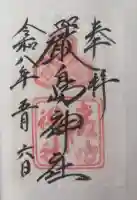 奉拝
嚴島神社
令和八年五月六日